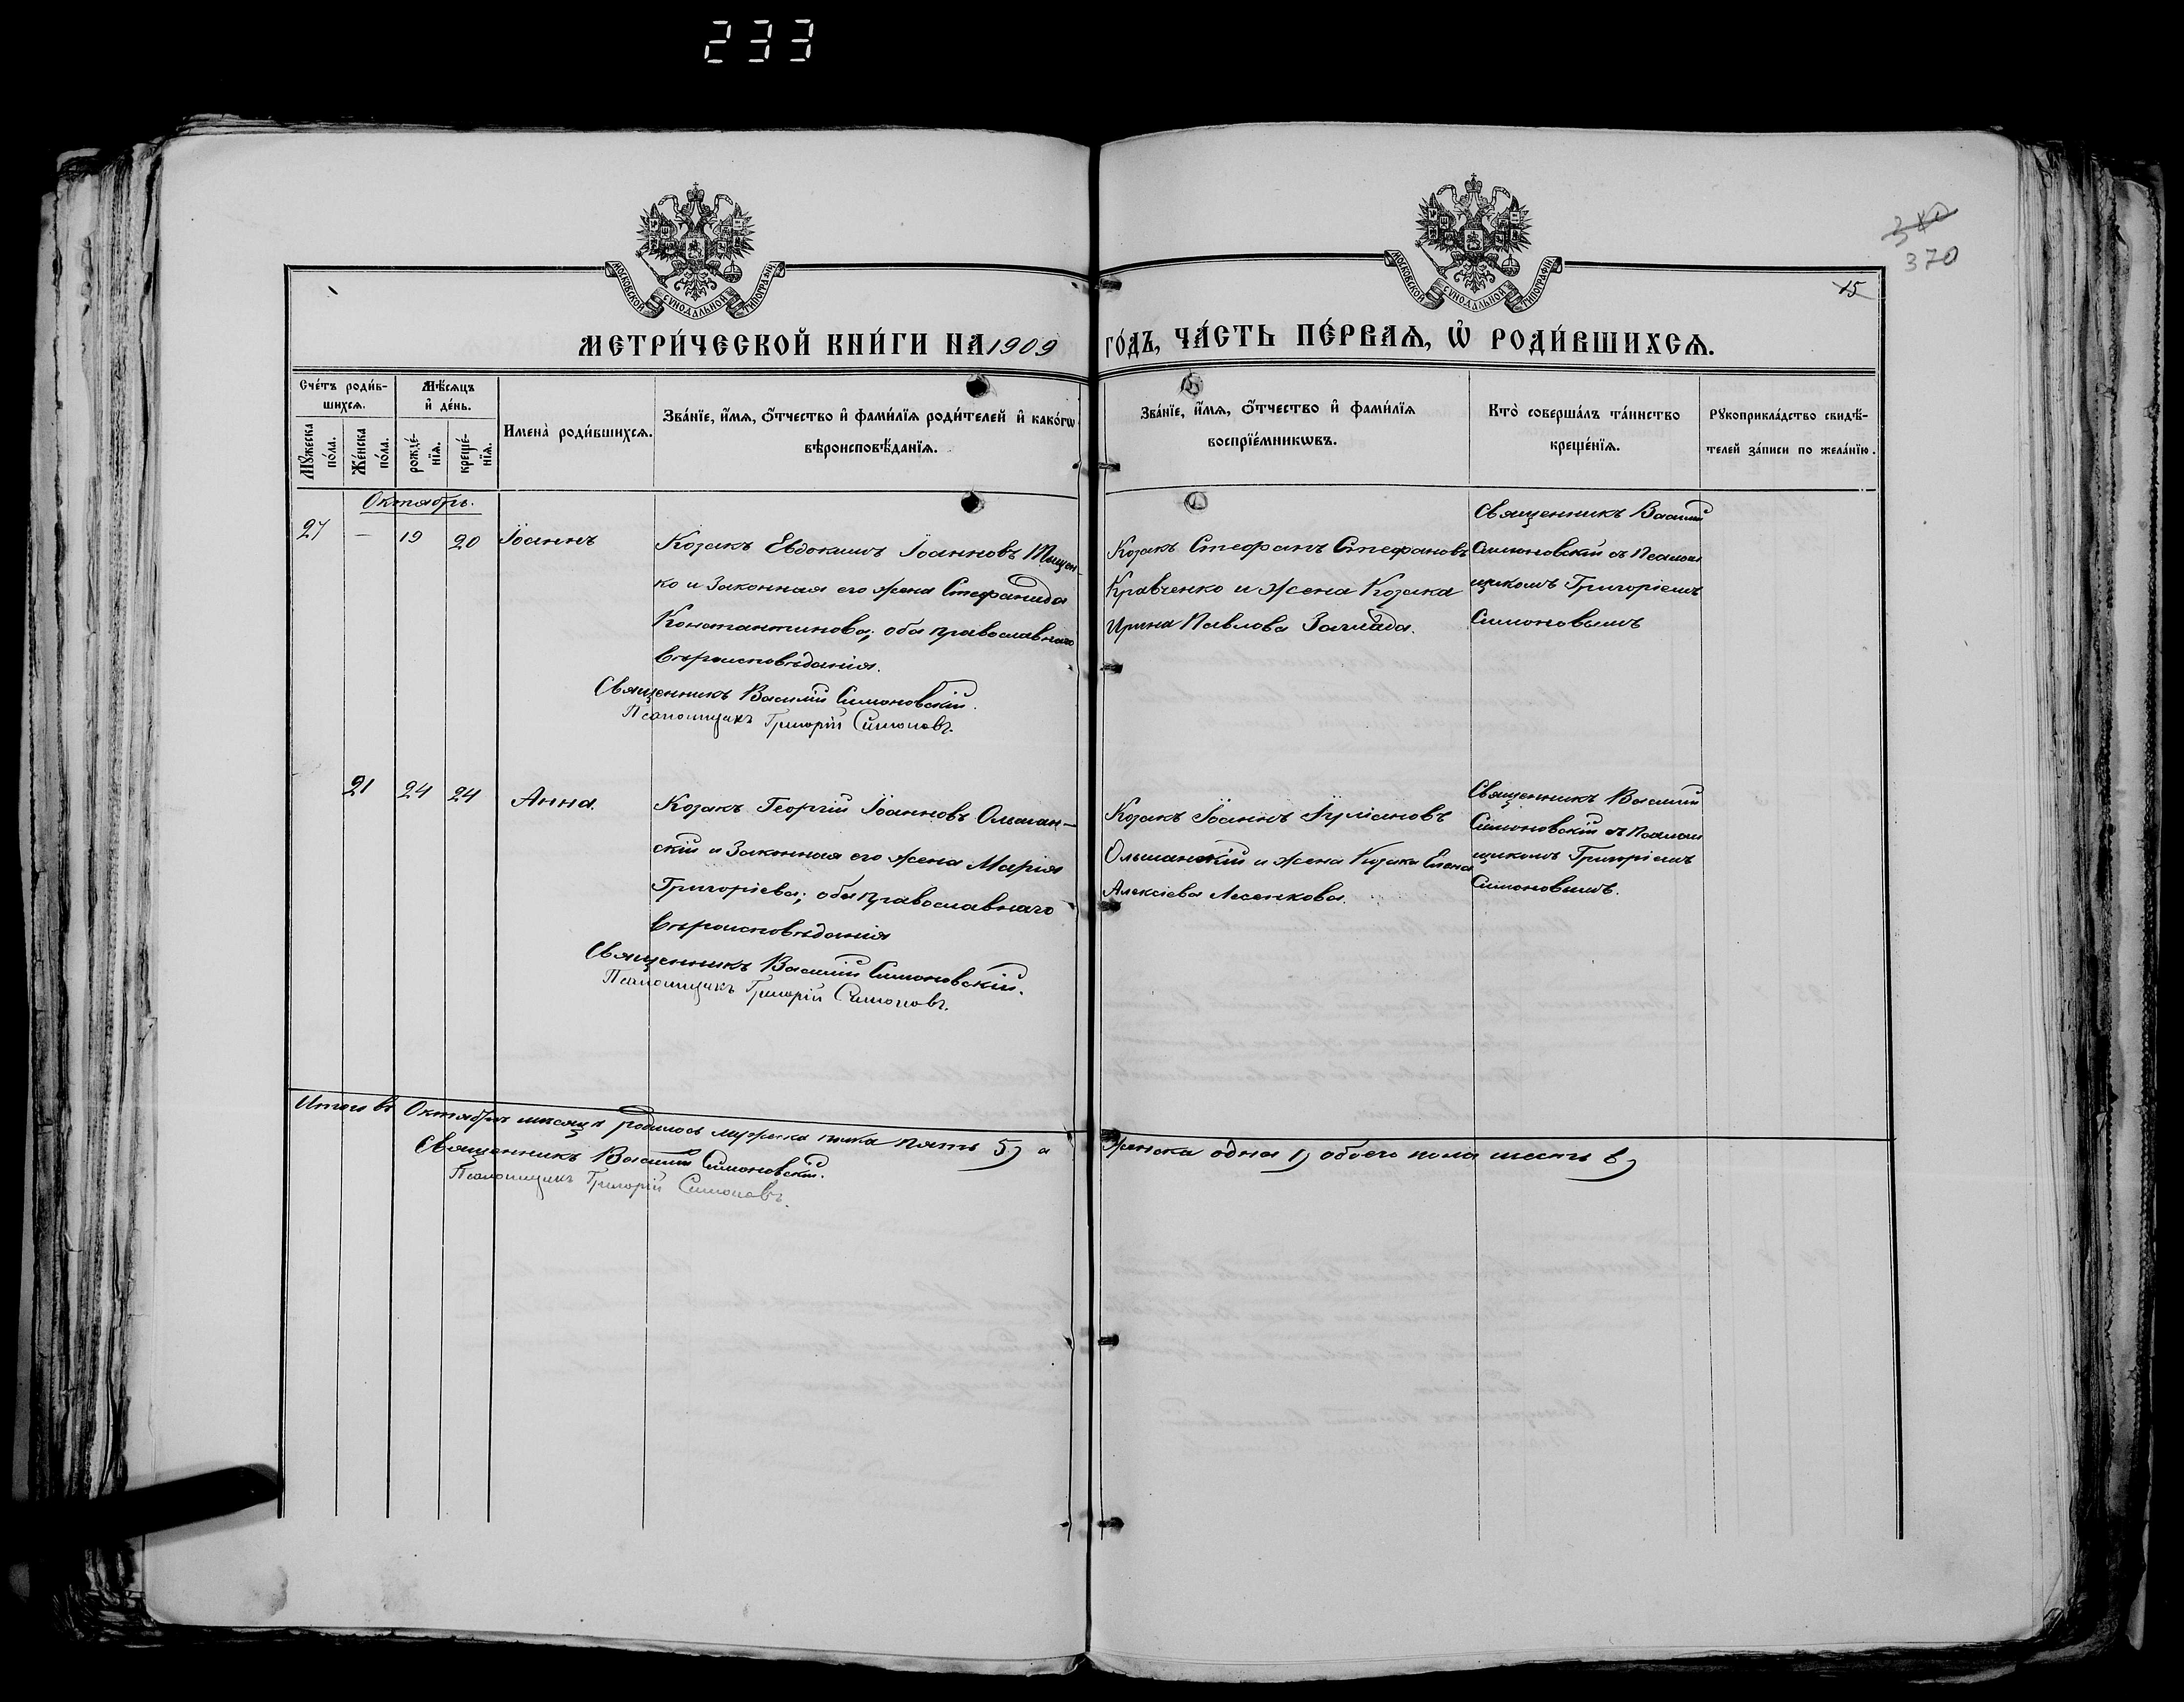 233
340
370
15
МОСКОВСКОЙ СѴНОДАЛЬНОЙ ТИПОГРАФІИ
МОСКОВСКОЙ СѴНОДАЛЬНОЙ ТИПОГРАФІИ
МЕТРИ́ЧЕСКОЙ КНИ́ГИ НА 1909 ГО́ДЪ, ЧА́СТЬ ПЕ́РВАѦ, Ѡ҆ РОДИ́ВШИХСѦ.
Сче́тъ роди́в-
шихсѧ.
Мѣ́сѧцъ
и҆ де́нь.
Мꙋ́жеска
по́ла.
Же́нска
по́ла.
рожде́-
нїѧ.
креще́-
нїѧ.
Имена̀ роди́вшихсѧ.
Зва́нїе, и҆́мѧ, ѻ҆́тчество и҆ фами́лїѧ роди́телей и҆ како́гѡ
вѣроисповѣ́данїѧ.
Зва́нїе, и҆́мѧ, ѻ҆́тчество и҆ фами́лїѧ
воспрїе́мникѡвъ.
Кто̀ соверша́лъ та́инство
креще́нїѧ.
Рꙋкоприкла́дство свидѣ́-
телей за́писи по жела́нїю.
Октябрь.
27 — 19 20 Іоаннъ
Козакъ Евдокимъ Іоанновъ Тищен-
ко и законная его жена Стефанида
Константинова; оба православнаго
вѣроисповѣданія.
Священникъ Василій Симоновскій.
Псаломщикъ Григорій Симоновъ.
Козакъ Стефанъ Стефановъ
Кравченко и жена Козака
Ирина Павлова
Священникъ Василій
Симоновскій съ Псалом
щикомъ Григоріемъ
Симоновымъ
21 24 24 Анна.
Козакъ Георгій Іоанновъ Ольшан-
скій и законная его жена Марія
Григоріева; оба православнаго
вѣроисповѣданія
Священникъ Василій Симоновскій.
Псаломщикъ Григорій Симоновъ.
Козакъ Іоаннъ Іуліановъ
Ольшанскій и жена Козака Елена
Алексіева Лесенкова.
Священникъ Василій
Симоновскій съ Псалом
щикомъ Григоріемъ
Симоновымъ.
Итого въ Октябрѣ мѣсяцѣ родилось мужеска пола пять 5) а женска одна 1) обоего пола шесть 6)
Священникъ Василій Симоновскій.
Псаломщикъ Григорій Симоновъ.